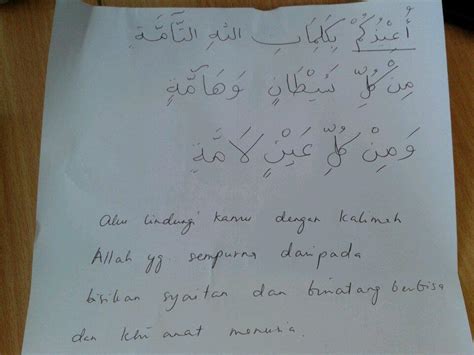 أُعِيْذُكُمْ بِكَلِمَاتِ اللهِ التَّآمَّةِ
مِنْ كُلِّ شَيْطَانٍ وَهَآمَّةٍ
وَمِنْ كُلِّ عَيْنٍ لَامَّةٍ
Aku lindungi kamu dengan kalimah
Allah yg sempurna daripada
bisikan syaitan dan binatang berbisa
dan khianat manusia.